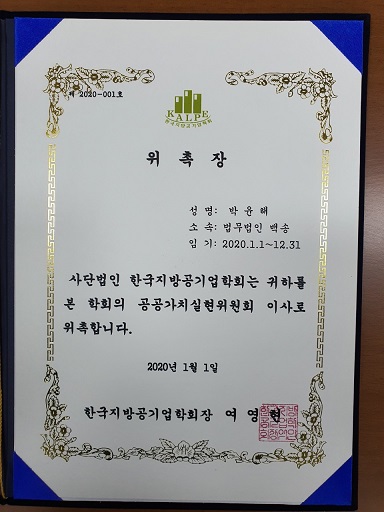 제 2020-001호
KALPE
한국지방공기업학회
위 촉 장
성 명: 박 윤 해
소 속: 법무법인 백송
임 기: 2020.1.1~12.31
사단법인 한국지방공기업학회는 귀하를
본 학회의 공공가치실현위원회 이사로
위촉합니다.
2020년 1월 1일
한국지방공기업학회장 여 영 현